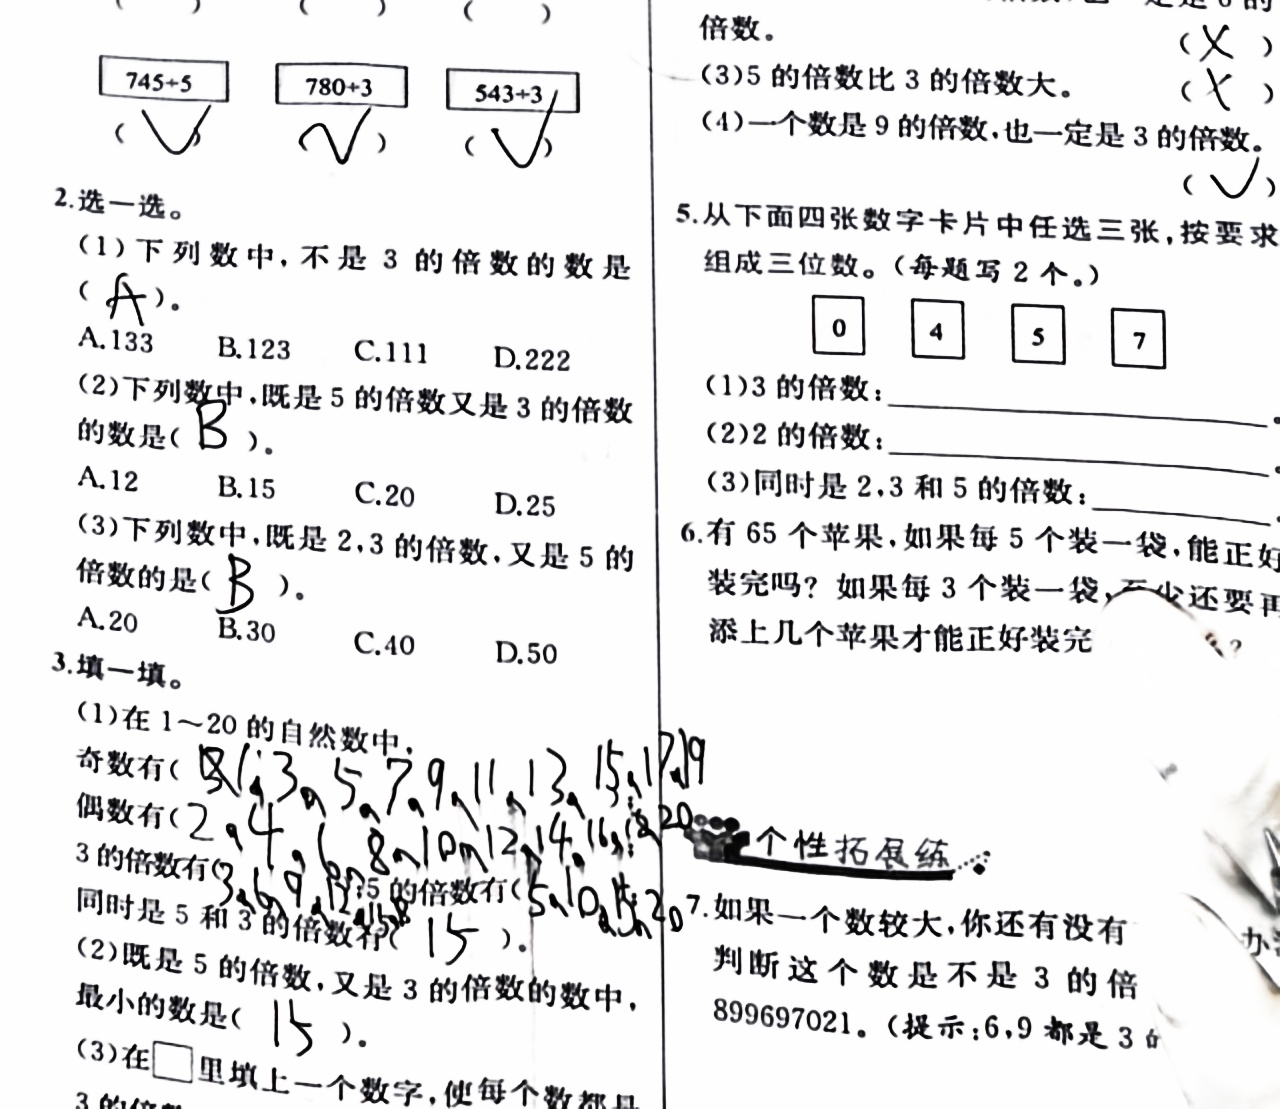 745÷5 780÷3 543÷3
(√) (√) (√)
2.选一选。
(1)下列数中,不是3的倍数的数是
(A)。
A.133 B.123 C.111 D.222
(2)下列数中,既是5的倍数又是3的倍数
的数是(B)。
A.12 B.15 C.20 D.25
(3)下列数中,既是2,3的倍数,又是5的
倍数的是(B)。
A.20 B.30 C.40 D.50
3.填一填。
(1)在1~20的自然数中,
奇数有(1,3,5,7,9,11,13,15,17,19
偶数有(2,4,6,8,10,12,14,16,18,20
3的倍数有(3,6,9,12,15,18 5的倍数有(5,10,15,20
同时是5和3的倍数有(15)。
(2)既是5的倍数,又是3的倍数的数中,
最小的数是(15)。
(3)在□里填上一个数字,使每个数都是
3的倍数
倍数。
(X)
(3)5的倍数比3的倍数大。 (X)
(4)一个数是9的倍数,也一定是3的倍数。
(√)
5.从下面四张数字卡片中任选三张,按要求
组成三位数。(每题写2个。)
0 4 5 7
(1)3的倍数:
(2)2的倍数:
(3)同时是2,3和5的倍数:
6.有65个苹果,如果每5个装一袋,能正好
装完吗?如果每3个装一袋,至少还要再
添上几个苹果才能正好装完 ?
个性拓展练
7.如果一个数较大,你还有没有
办
判断这个数是不是3的倍
899697021。(提示:6,9都是3的